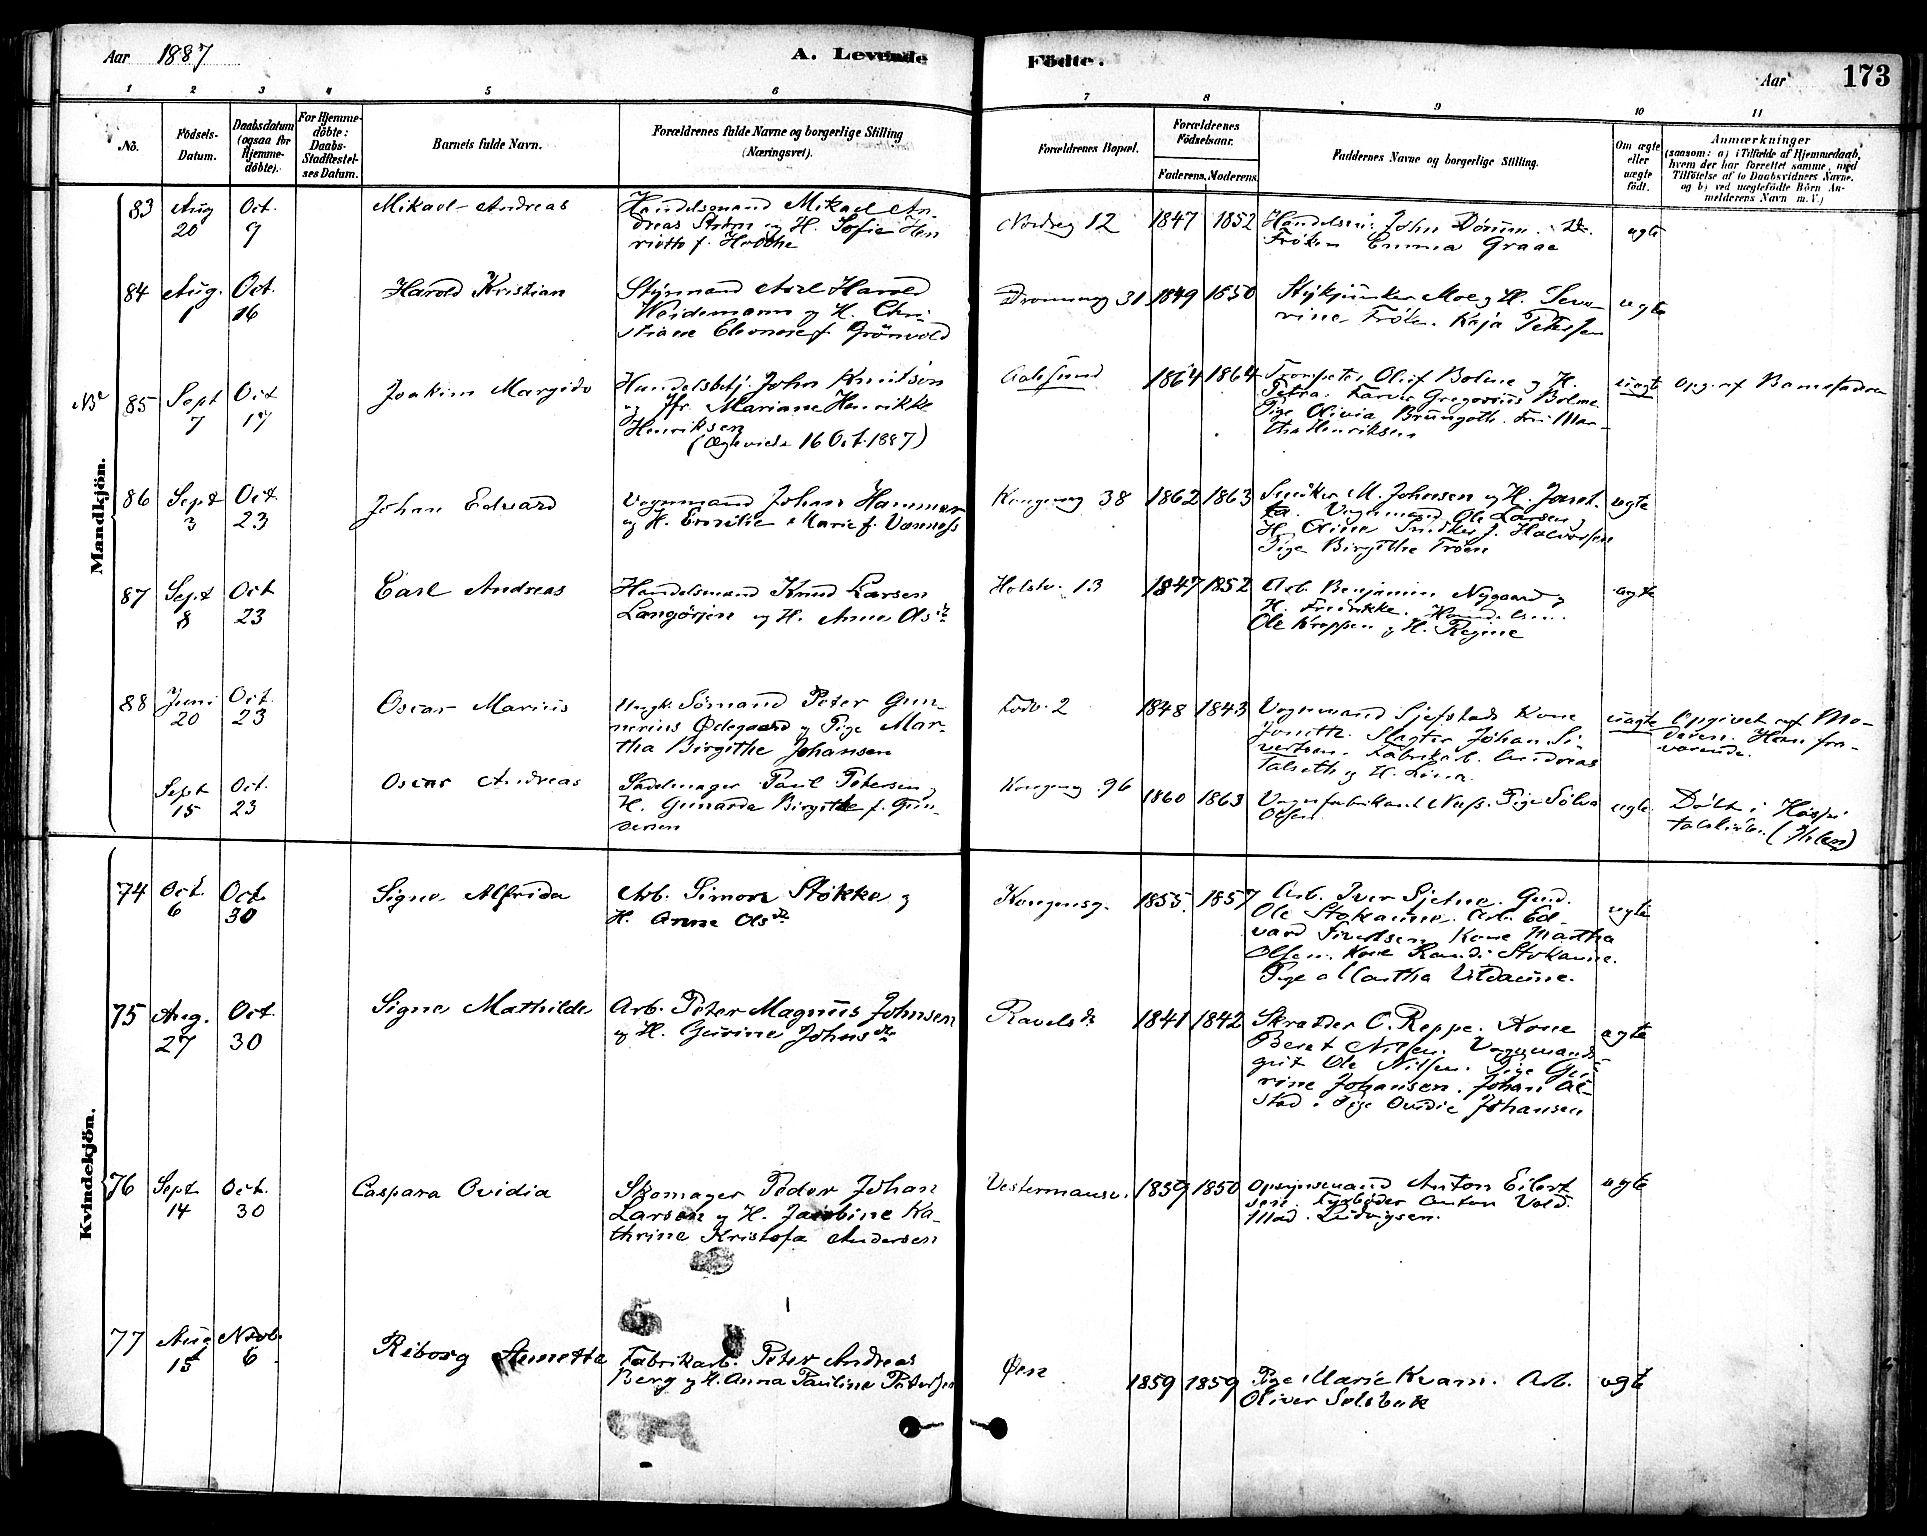 Aar 1887
A. Levende Fødte.
Aar
173
1 2 3 4 5 6 7 8 9 10 11
No.
Fødsels-
Datum.
Daabsdatum
(ogsaa for
Hjemme-
døbte).
For Hjemme-
døbte:
Daabs-
Stadfæstel-
ses Datum.
Barnets fulde Navn.
Forældrenes fulde Navne og borgerlige Stilling
(Næringsvei).
Forældrenes Bopæl.
Forældrenes
Fødselsaar.
Faderens. Moderens.
Faddernes Navne og borgerlige Stilling.
Om ægte
eller
uægte
født.
Anmærkninger
(saasom: a) i Tilfælde af Hjemmedaab,
hvem der har forrettet samme, med
Tilføielse af to Daabsvidners Navne.
og b) ved uægtefødte Børn An-
melderens Navn m. V.)
Mandkjøn.
83
Aug
20
Oct.
9
Mikael Andreas
Handelsmand Mikael An-
dreas Strøm og H. Sofie Hen
riette f.
Nordreg 12
1847 1852
John
Frøken Emma Graae
ægte
84
Aug.
1
Oct.
16
Harold Kristian
Styrmand Axel Harold
Weidemann og H. Chri-
stiane Eleonore f. Grønvold
Dronning 31
1849 1850
Stykjunker Moe og H. Seve-
rine. Frøken Kaja Petersen
ægte
85
Sept
7
Oct
17
Joakim Margido
Handelsbetj. John Knutson
og Jfr. Mariane Henrikke
Henriksen
(Ægteviede 16 Oct. 1887)
Aalesund
1864 1864
Trompeter Oluf Bolme og H.
Petra. Farver Gregorius Bolme
Pige Olivia Brungoth. Mar-
tha Henriksen
uægte
Opg. af Barnefaderen
86
Sept
3
Oct
23
Johan Edvard
Vognmand Johan Hammer
og H. Emilie Marie f. Vanness
Kongensg 38
1862 1863
Snedker M. Johnsen og H. Joret-
ta. Vognmand Ole Larsen og
H. Oline Snedker J. Halvorsen
Pige Birgithe Trøen
ægte
87
Sept
8
Oct
23
Carl Andreas
Handelsmand Knud Larsen
Langørjen og H. Anne Olsdtr
Holstv. 13
1847 1852
Arb. Benjamin Nygaard og
H. Fredrikke.
Ole Kroppen og H. Regine
ægte
88
Juni
20
Oct.
23
Oscar Marius
Ungk. Sømand Peter Gun-
nerius Ødegaard og Pige Mar-
tha Birgithe Johansen
2
1848 1843
Vognmand Sjefstads Kone
Jonitta. Slagter Johan Si-
vertsen. Fabrikarb. Andreas
Talseth og H. Lina.
uægte
Opgivet af Mo-
deren. Han fra-
værende.
Sept
15
Oct.
23
Oscar Andreas
Sadelmager Paul Petersen og
H. Gunarda Birgitte f. Gun-
dersen
Kongensg 96
1860 1863
Vognfabrikant Nuss. Pige Sølva
Olsen
ægte.
Døbt i Hospi-
talskirken (Ihlen)
Kvindekjøn.
74
Oct.
6
Oct
30
Signe Alfrida
Arb. Simon Stokke og
H. Anne Olsdtr
Kongensg.
1855. 1857
Arb. Iver Sjetne. Grd.
Ole Stokaune. Arb. Ed-
vard Sivertsen Kone Martha
Olsen. Kone Randi Stokaune.
Pige Martha Uldaune.
ægte
75
Aug.
27
Oct.
30
Signe Mathilde
Arb. Peter Magnus Johnsen
og H. Gurine Johnsdtr
Ravelsb
1841 1842
Skrædder O. Reppe. Kone
Beret Nilsen. Vognmands-
gut Ole Nilsen. Pige Gu-
rine Johansen. Johan Al-
stad. Pige Ovidie Johansen
ægte
76
Sept
14
Oct.
30
Caspara Ovidia
Skomager Peder Johan
Larsen og H. Jacobine Ka-
thrine Kristofa Andersen
Vestermansv.
1859 1850
Opsynsmand Anton Eilert
sen. Fyrbøder Anton Vold.
Mad. Ludvigsen.
ægte
77
Aug
15
Novb.
6
Riborg Annette
Fabrikarb. Peter Andreas
Berg og H. Anna Pauline Petersen
Øen
1859 1859
Pige Marie Kvam. Arb.
Oliver Solsbak
ægte